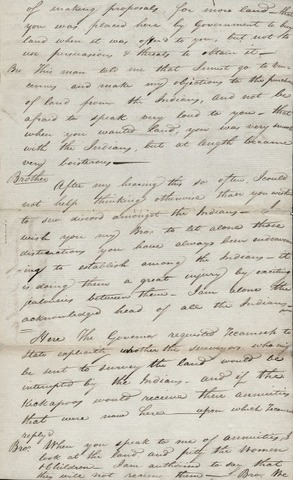 of making proposals for more land - that
you was placed here by government to buy
land when it was offered to you, but not to
use persuasion & threats to obtain it -
Bro This man told me that I must go to Vin-
cennes and make my objections to the purchase
of land from the Indians, and not be
afraid to speak very loud to you - that
when you wanted land, you was very smooth
with the Indians, but at length became
very boisterous -
Brother After my hearing this so often, I could
not help thinking otherwise than you wished
to sow discord amongst the Indians - I
wish you my Bro. to let alone those
distinctions you have always been endeavor
ing to establish among the Indians - it
is doing them a great injury by exciting
jealousies between them - I am alone the
acknowledged head of all the Indians -
Here The Governor requested Tecumseh to
State explicitly whether the surveyors, who might
be sent to survey the land would be
interrupted by the Indians - and if the
Kickapoos would receive their annuities
that were now here - upon which Tecumseh
reply'd
Bro. When you speak to me of annuities, I
look at the land and pity the Women
& Children. I am authorised to say that
they will not receive them - Bro. We